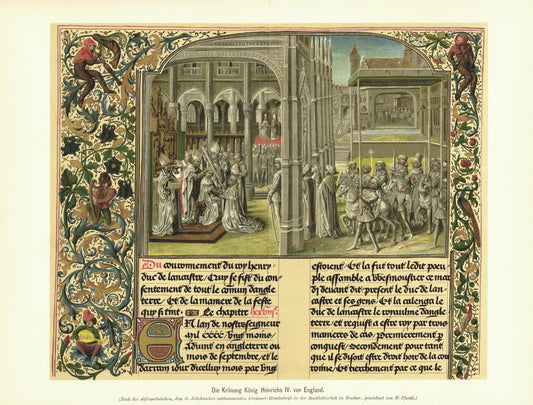 Du couronnement du roy henry
duc de lancastre. Qui se fist du con
sentement de tout le commun dangle
terre. Et de la maniere de la feste
qui si tint. Le chapitre
En lan de nostre seigneur
mil cccc. vng mois
aduint en angleterre ou
mois de septembre, et le
darrain iour dicelluy mois par vng
estoient. Et la fut tout ledit peu
ple assamble a wesmoustier ce mar
di deuant dit present le duc de lan
castre et ses gens. Et la calenga le
duc de lancastre le royaulme dangle
terre, et requist a estre roy par trois
manieres de cas. premierement par
conqueste. secondement pour tant
que il se disoit estre droit hoir de la cou
ronne. Et tiercement par ce que le
Die Krönung König Heinrichs IV. von England.
(Nach der altfranzösischen, dem 15. Jahrhundert entstammenden Froissart-Handschrift in der Stadtbibliothek zu Breslau, gezeichnet von M.